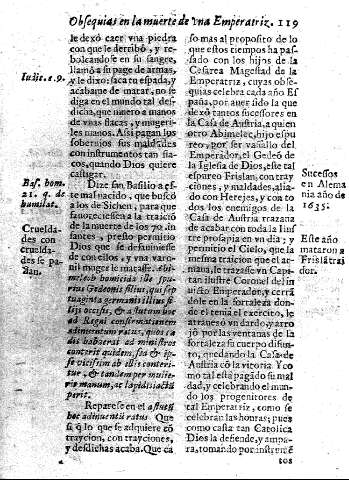 Obsequias en la muerte de vna Emperatriz. 119
le dexó caer vna piedra
con que le derribó, y re-
bolcandose en su sangre,
llamó a su page de armas,
y le dixo: saca tu espada, y
acabame de matar, no se
diga en el mundo tal des-
dicha, que muero a manos
de vnas flacas, y mugeri-
les manos. Assi pagan los
soberuios sus maldades
con instrumentos tan fla-
cos, quando Dios quiere
castigar.
Dize san Basilio a es-
te mal nacido, que buscó
a los de Sichen, para que
fauoreciessen a la traició
de la muerte de los 70. in-
fantes, presto permitió
Dios que se desauiniesse
de con ellos, y vna varo-
nil muger le matasse. Abi-
melech homicida ille spu-
rius Gedeonis filius, qui sep-
tuaginta germanis illius fi-
lijs occisis, & astutum hoc
ad Regni confirmationem
adinuentum ratus, quos cæ-
dis habuerat ad ministros
contriuit quidem, sed & ip-
se vicissim ab illis conteri-
tur, & tandem per mulie-
ris manum, ac lapidis iactũ
perit.
Reparese en el astutũ
hoc adinuentũ ratus. Que
sĩ q̃ lo que se adquiere cõ
traycion, con trayciones,
y desdichas acaba. Que ca
Iudic. c. 9.
Bas. hom.
21. q. de
humilat.
Crueldа-
des con
cruelda-
des se pa-
gan.
so mas al proposito de lo
que estos tiempos ha pas-
sado con los hijos de la
Cesarea Magestad de la
Emperatriz, cuyas obse-
quias celebra cada año Es
paña, por auer sido la que
dexó tantos sucessores en
la Casa de Austria, a quien
otro Abimelec, hijo espu
reo, por ser vassallo del
Emperador, el Gedeõ de
la Iglesia de Dios, este tal
espureo Frislan, con tray
ciones, y maldades, alia-
do con Herejes, y con to-
dos los enemigos de la
Casa de Austria trazana
de acabar con toda la Ilus
tre prosapia en vn dia; y
permitio el Cielo, que la
mesma traicion que el ar-
maua, le trazasse vn Capi-
tan ilustre Coronel del in
uicto Emperador, y cerrã
dole en la fortaleza don-
de el tenia el exercito, le
atrauesó vn dardo, y arro
jó por las ventanas de la
fortaleza su cuerpo difun-
to, quedando la Casa de
Austria cõ la vitoria. Y co
mo tal está pagado su mal
dad, y celebrando el mun-
do los progenitores de
tal Emperatriz, como se
celebran las honras; pues
como casta tan Catolica
Dios la defiende, y ampa-
ra, tomando por instrumẽ
tos
Sucessos
en Alema
nia año de
1635.
Este año
mataron a
Frislã trai
dor.